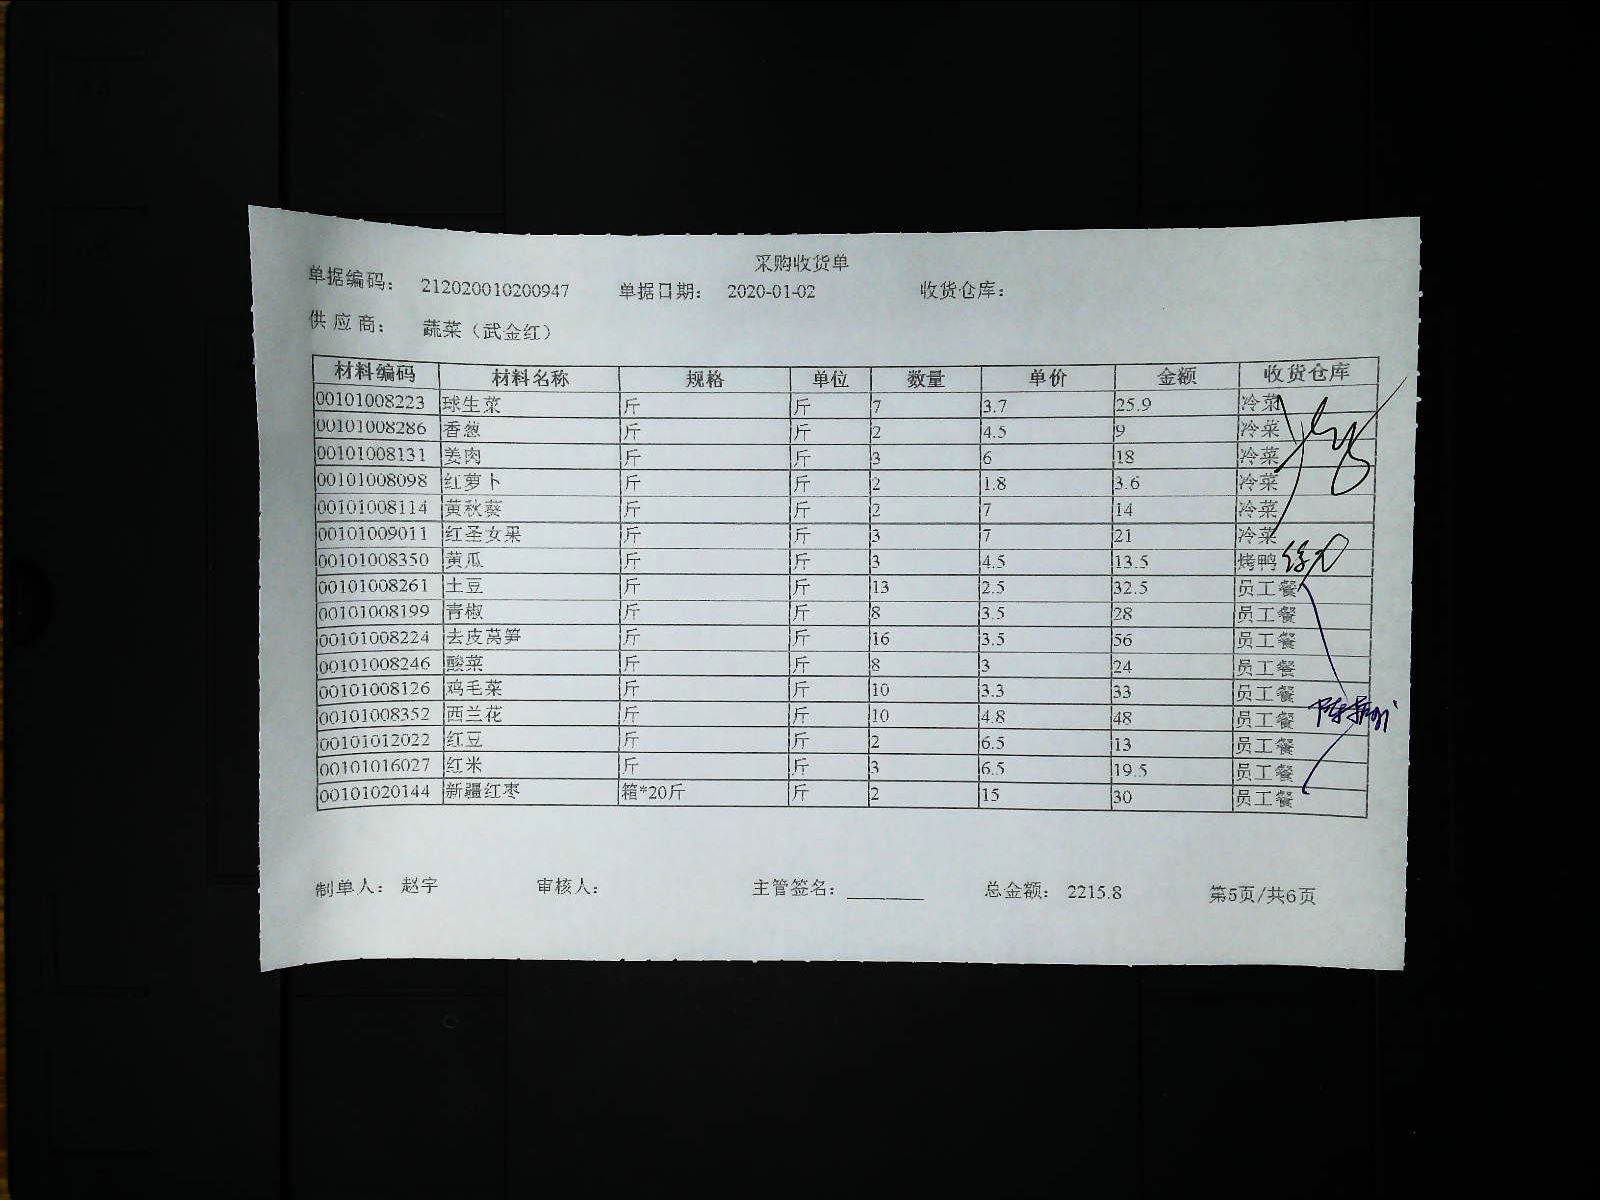 采购收货单
单据编码： 212020010200947 单据日期： 2020-01-02 收货仓库：
供应商： 蔬菜（武金红）
材料编码 材料名称 规格 单位 数量 单价 金额 收货仓库
00101008223 球生菜 斤 斤 7 3.7 25.9 冷菜
00101008286 香葱 斤 斤 2 4.5 9 冷菜
00101008131 姜肉 斤 斤 3 6 18 冷菜
00101008098 红萝卜 斤 斤 2 1.8 3.6 冷菜
00101008114 黄秋葵 斤 斤 2 7 14 冷菜
00101009011 红圣女果 斤 斤 3 7 21 冷菜
00101008350 黄瓜 斤 斤 3 4.5 13.5 烤鸭
00101008261 土豆 斤 斤 13 2.5 32.5 员工餐
00101008199 青椒 斤 斤 8 3.5 28 员工餐
00101008224 去皮莴笋 斤 斤 16 3.5 56 员工餐
00101008246 酸菜 斤 斤 8 3 24 员工餐
00101008126 鸡毛菜 斤 斤 10 3.3 33 员工餐
00101008352 西兰花 斤 斤 10 4.8 48 员工餐
00101012022 红豆 斤 斤 2 6.5 13 员工餐
00101016027 红米 斤 斤 3 6.5 19.5 员工餐
00101020144 新疆红枣 箱*20斤 斤 2 15 30 员工餐
制单人： 赵宇 审核人： 主管签名： 总金额： 2215.8 第5页/共6页